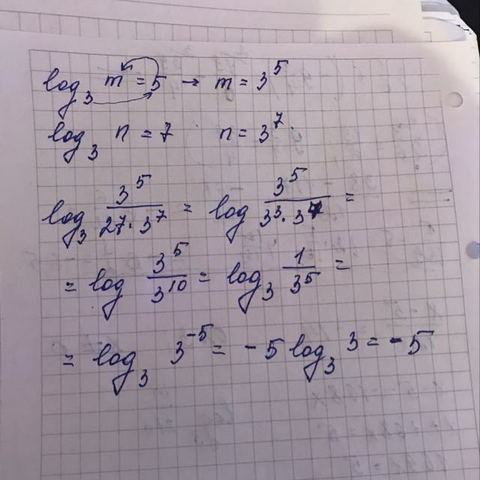 log₃ m = 5 → m = 3⁵
log₃ n = 7 n = 3⁷
log₃ 3⁵/(27·3⁷) = log 3⁵/(3³·3⁷) =
= log 3⁵/3¹⁰ = log₃ 1/3⁵ =
= log₃ 3⁻⁵ = -5 log₃ 3 = -5